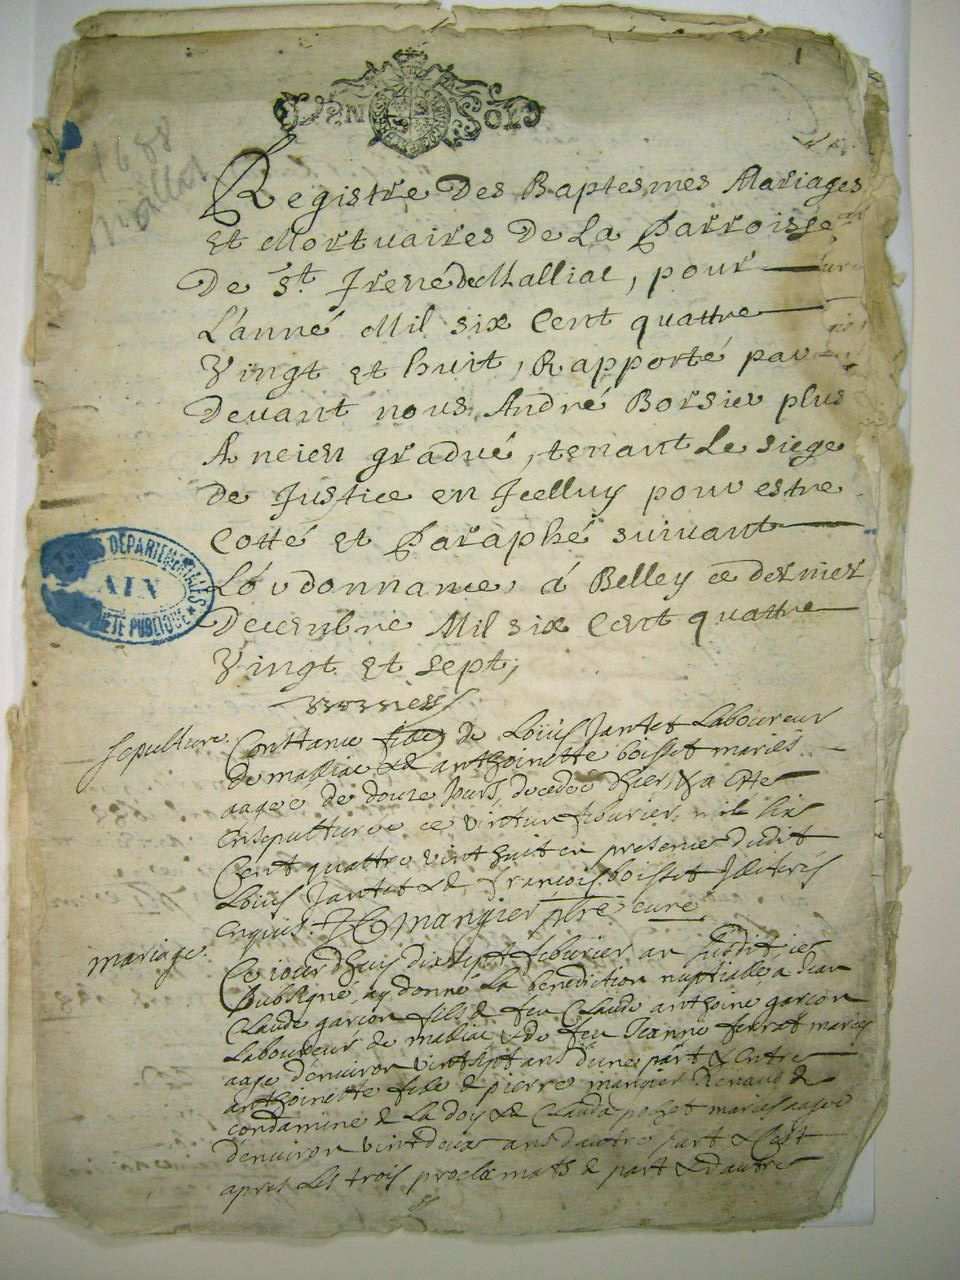 1
1688
DEN SOLS
Registre Des Baptesmes Mariages
Et Mortuaires De La Parroisse
De St Irené De Malliac, pour
L'anné Mil six Cent quattre
Vingt et huit, Rapporté par
Devant nous André Borsier plus
Ancien gradué, tenant Le siege
De Justice en Icelluy pour estre
Cotté et Paraphé suivant
L'ordonnance, à Belley ce dernier
Decembre Mil six Cent quattre
Vingt et sept,
ARCHIVES DÉPARTEMENTALES
AIN
PROPRIÉTÉ PUBLIQUE
Sepulture
Constance fille de Loüis Jantet Laboureur
de malliac & d anthoinette boisset mariés
aagee de douze jours, decedee d'hier, Ha este
ensepulturee ce vintun febvrier, mil six
Cent quattre vint huit en presence dudit
Loüis Jantet & de françois boisset
enquis. mangier ptre curé
mariage
Ce jourdhuy dixsept febvrier an susdit, je
soubsigné, ay donné La benediction nuptialle a
Claude garçon fils de feu Claude anthoine garçon
Laboureur de malliac & de feu Jeanne ferrat mariés
aagé d'environ vintsept ans d'une part & Entre
anthoinette fille de pierre mangier Renaud de
condamine de La doy & de Claudа mariés aagee
d'environ vintdeux ans d'autre part & C'est
apres Les trois proclamats de part & d'autre